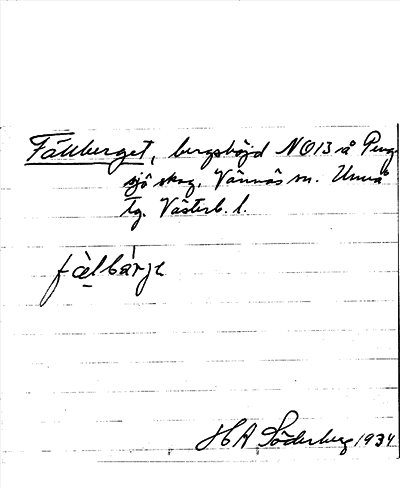 Fällberget, bergshöjd NO13 å Peng-
sjö skog, Vännäs sn. Umeå
tg. Västerb. l.
fàlbárje
H A Söderberg 1934